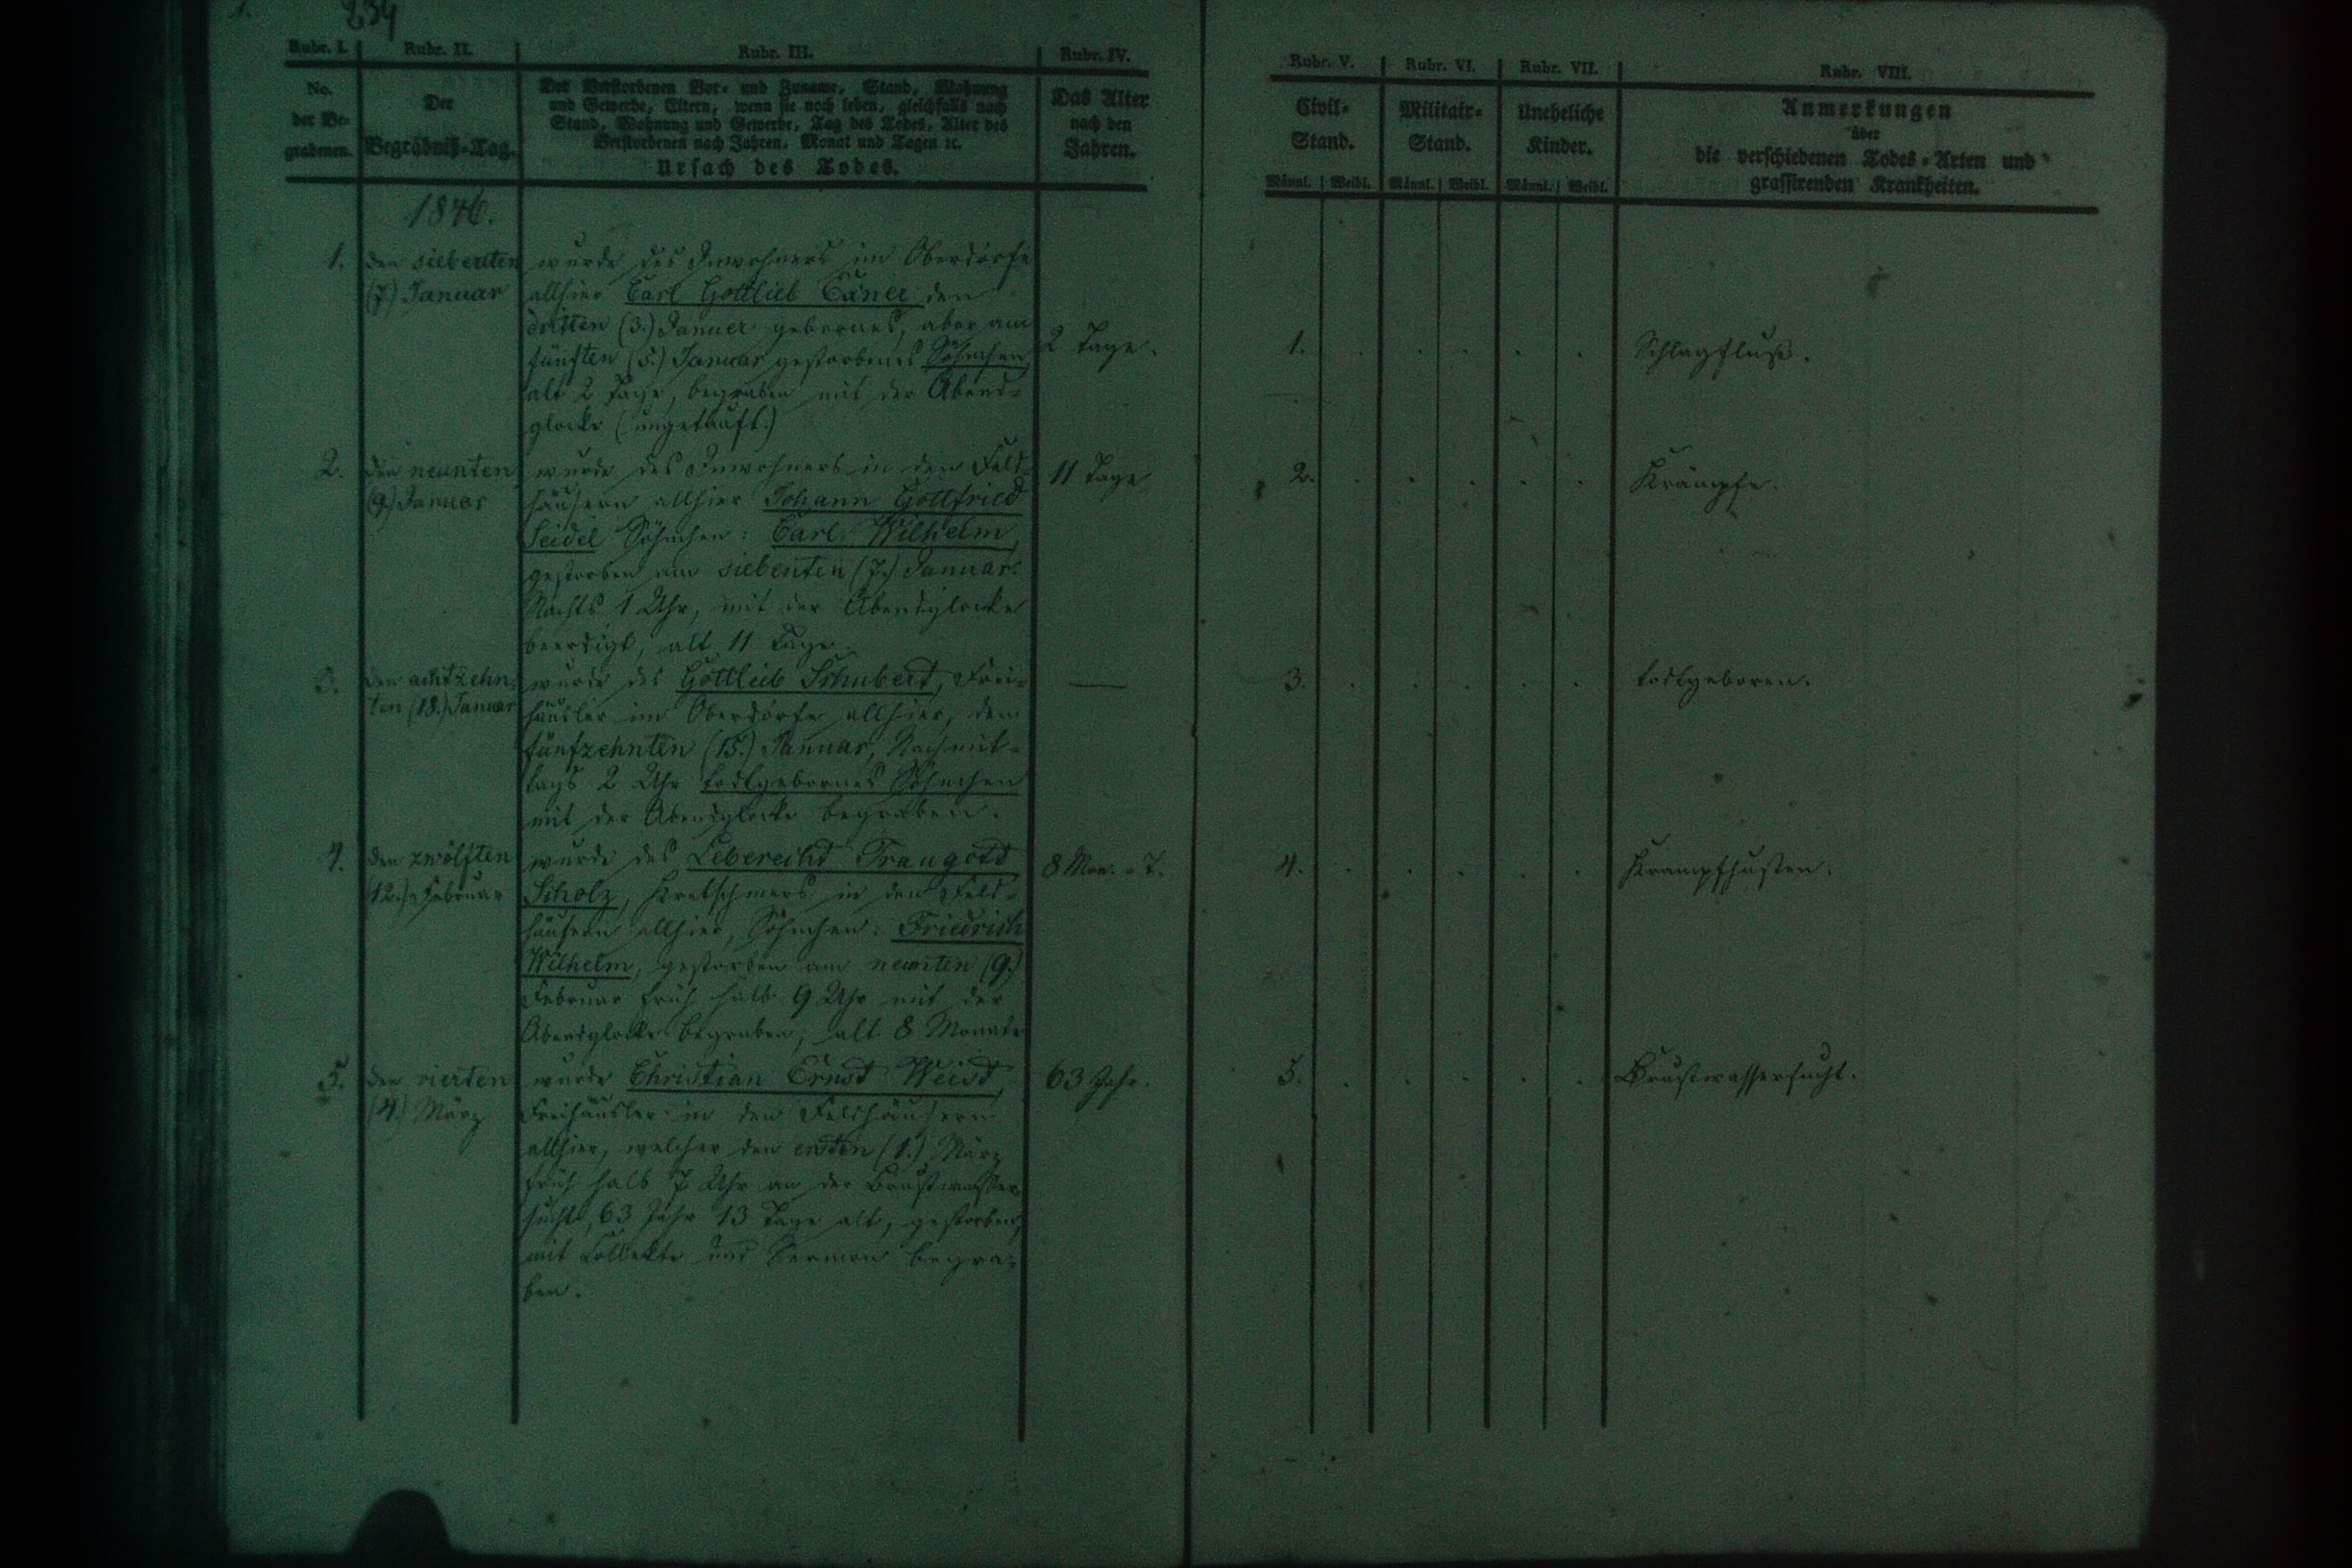 234
Rubr. I. Rubr. II. Rubr. III. Rubr. IV. Rubr. V. Rubr. VI. Rubr. VII. Rubr. VIII.
No.
der Be-
grabenen.
Der
Begräbniß-Tag.
Der Verstorbenen Vor- und Zuname, Stand, Wohnung
und Gewerbe, Eltern, wenn sie noch leben, gleichfalls nach
Stand, Wohnung und Gewerbe, Tag des Todes, Alter des
Verstorbenen nach Jahren, Monat und Tagen ꝛc.
Ursach des Todes.
Das Alter
nach den
Jahren.
Civil-
Stand.
Männl. Weibl.
Militair-
Stand.
Männl. Weibl.
Uneheliche
Kinder.
Männl. Weibl.
Anmerkungen
über
die verschiedenen Todes-Arten und
grassirenden Krankheiten.
1846.
1. den siebenten
(7.) Januar
wurde des Inwohners im Oberdorfe
allhier Carl Gottlieb den
dritten (3.) Januar gebornes, aber am
fünften (5.) Januar gestorbenes Söhnchen,
alt 2 Tage, begraben mit der Abend-
glocke (ungetauft.)
2 Tage.
1.
Schlagfluß.
2. den neunten
(9.) Januar
wurde des Inwohners in den Feld-
häusern allhier Johann Gottfried
Seidel Söhnchen: Carl Wilhelm,
gestorben am siebenten (7.) Januar.
Nachts 1 Uhr, mit der Abendglocke
beerdigt, alt 11 Tage.
11 Tage
2.
Krämpfe.
3. den achtzehn-
ten (18.) Januar
wurde des Gottlieb Schubert, Frei-
häusler im Oberdorfe allhier, den
fünfzehnten (15.) Januar, Nachmit-
tags 2 Uhr todtgebornes Söhnchen
mit der Abendglocke begraben.
—
3.
todtgeboren.
4. den zwölften
(12.) Februar
wurde des Leberecht Traugott
Scholz, Kretschmers in den Feld-
häusern allhier, Söhnchen: Friedrich
Wilhelm, gestorben am neunten (9.)
Februar früh halb 9 Uhr mit der
Abendglocke begraben, alt 8 Monate
8 Mon. - T.
4.
Krampfhusten.
5. den vierten
(4.) März
wurde Christian Ernst Weist,
Freihäusler in den Feldhäusern
allhier, welcher den ersten (1.) März
früh halb 7 Uhr an der Brustwasser-
sucht, 63 Jahr 13 Tage alt, gestorben,
mit Collekte und Sermon begra-
ben.
63 Jahr.
5.
Brustwassersucht.